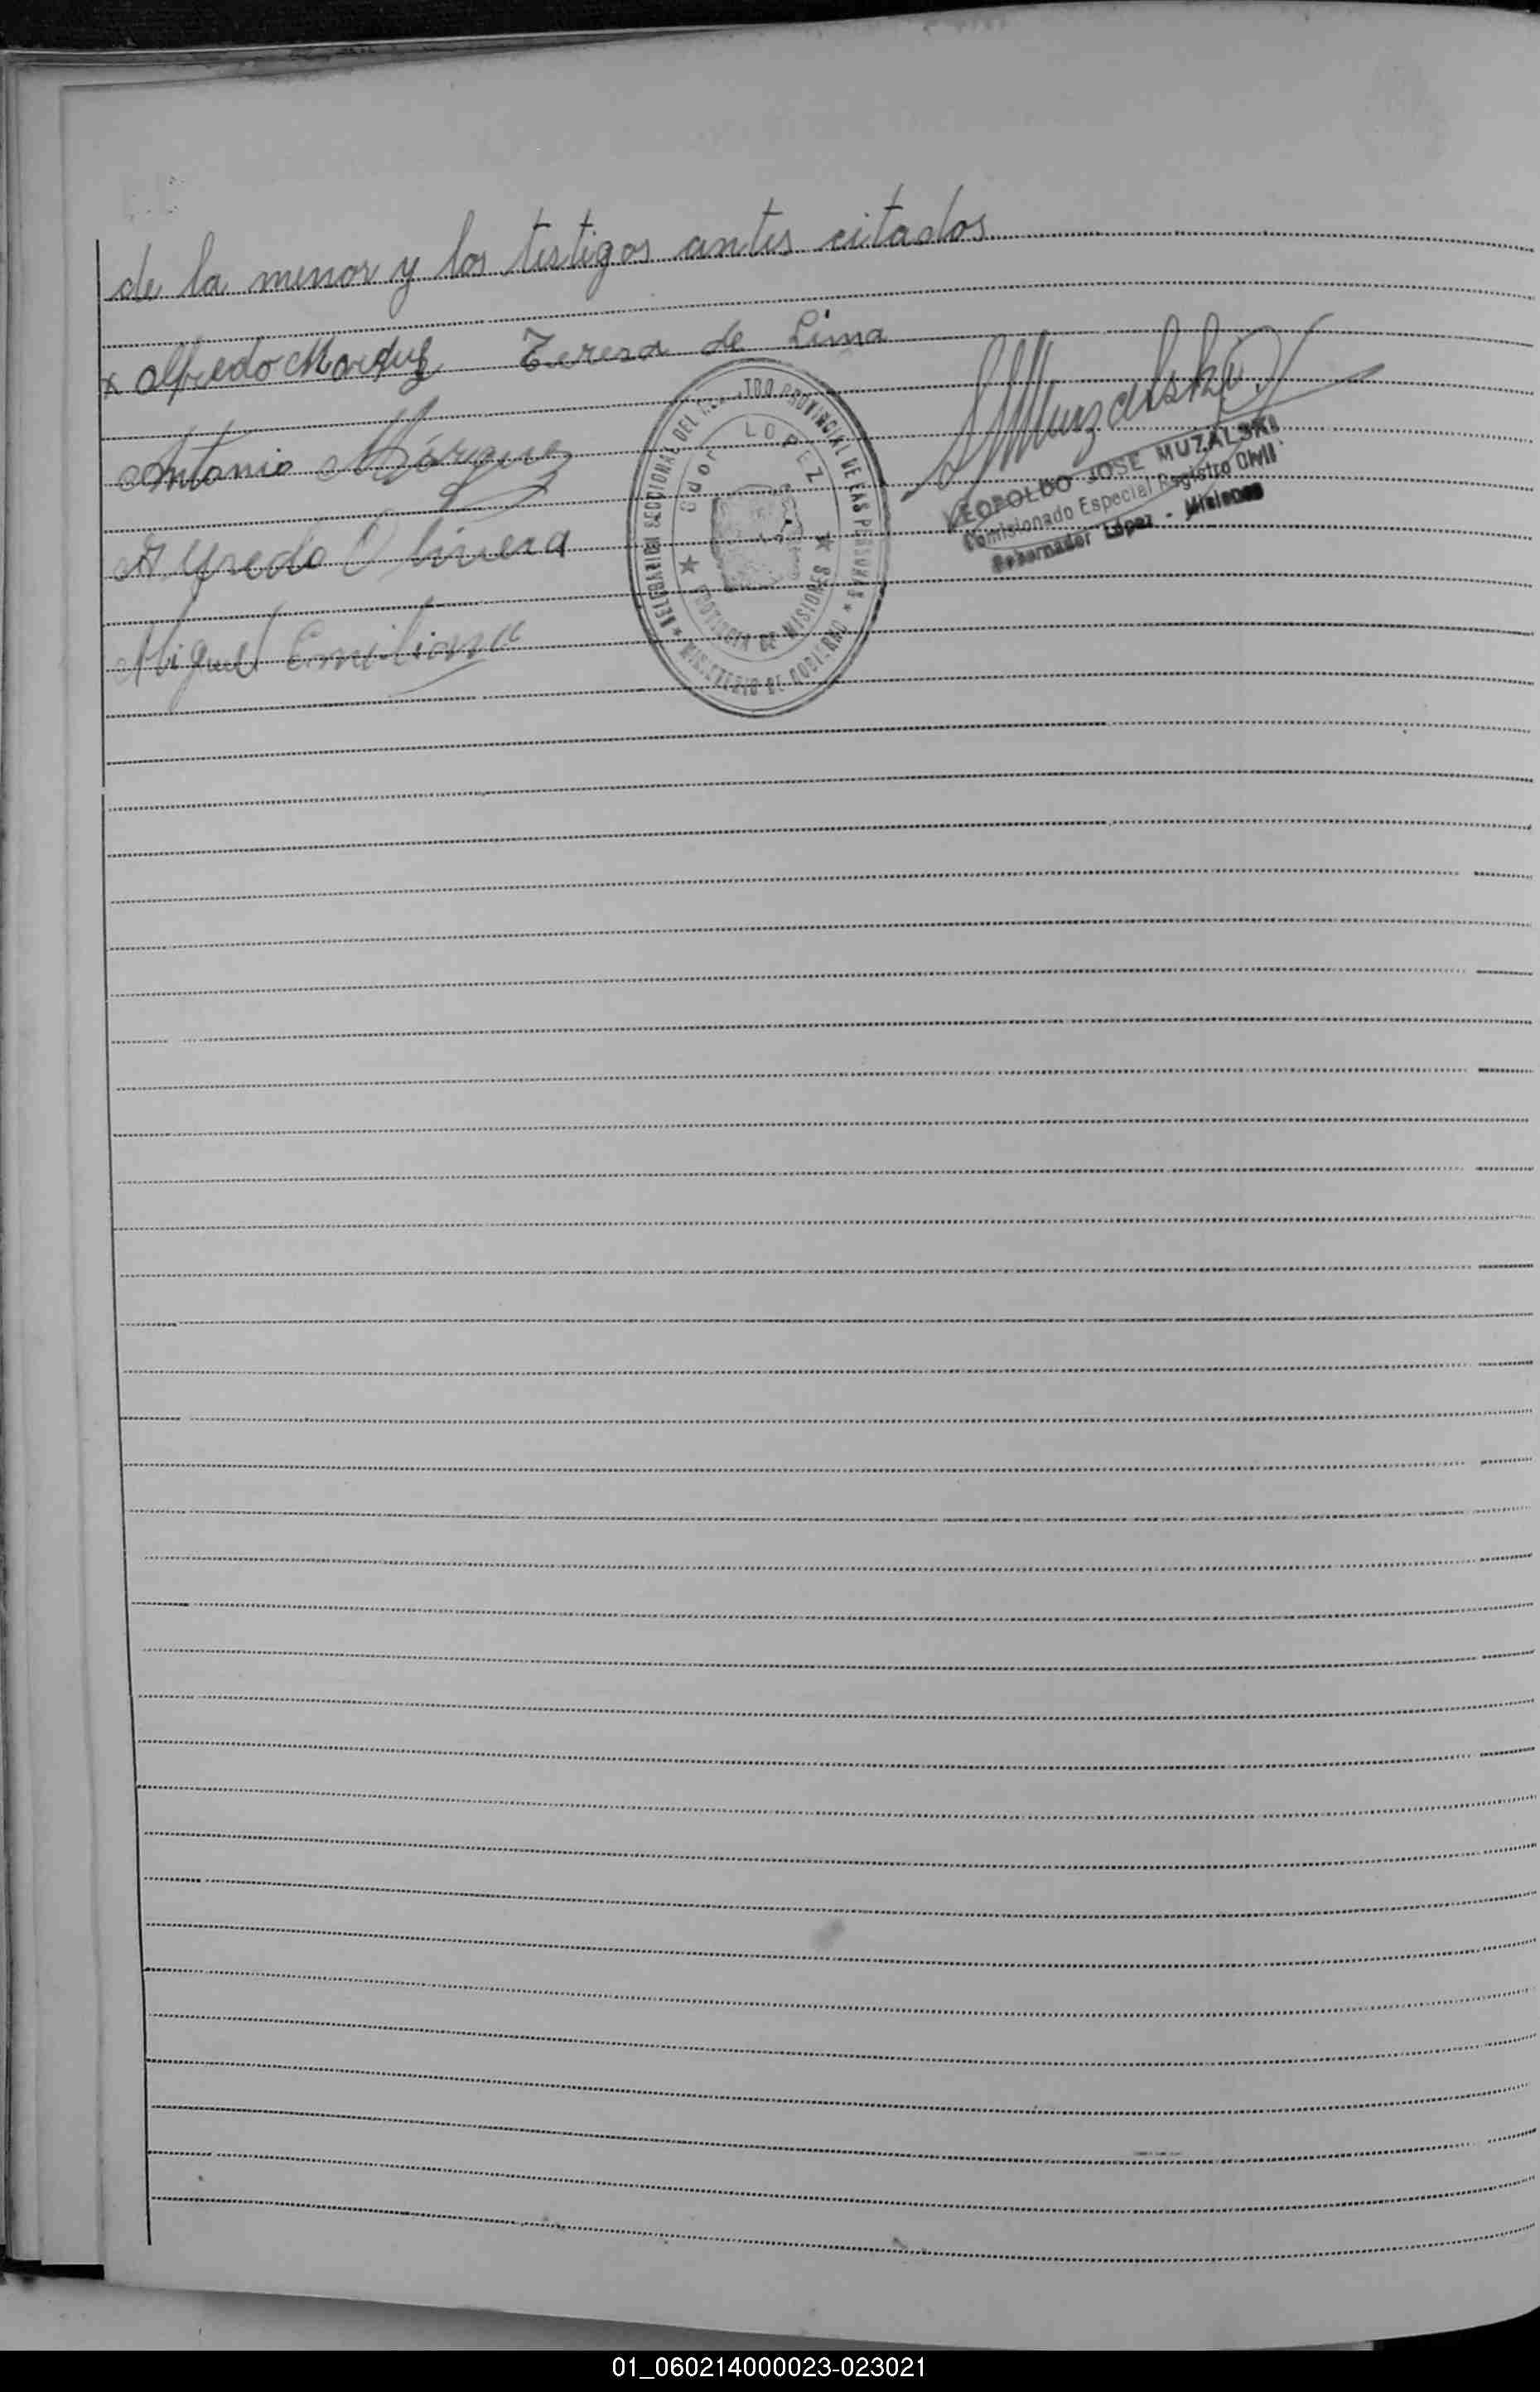 de la menor y los testigos antes citados
x Alfredo Marquez Teresa de Lima
Antonio Márquez
Alfredo Olivera
Miguel Emiliano
DELEGACION SECCIONAL DEL PROVINCIAL DE LAS PERSONAS
MINISTERIO DE GOBIERNO
Gdor LOPEZ
PROVINCIA DE MISIONES
LEOPOLDO JOSE MUZALSKI
Comisionado Especial Registro Civil
Gobernador López - Misiones
01_060214000023-023021